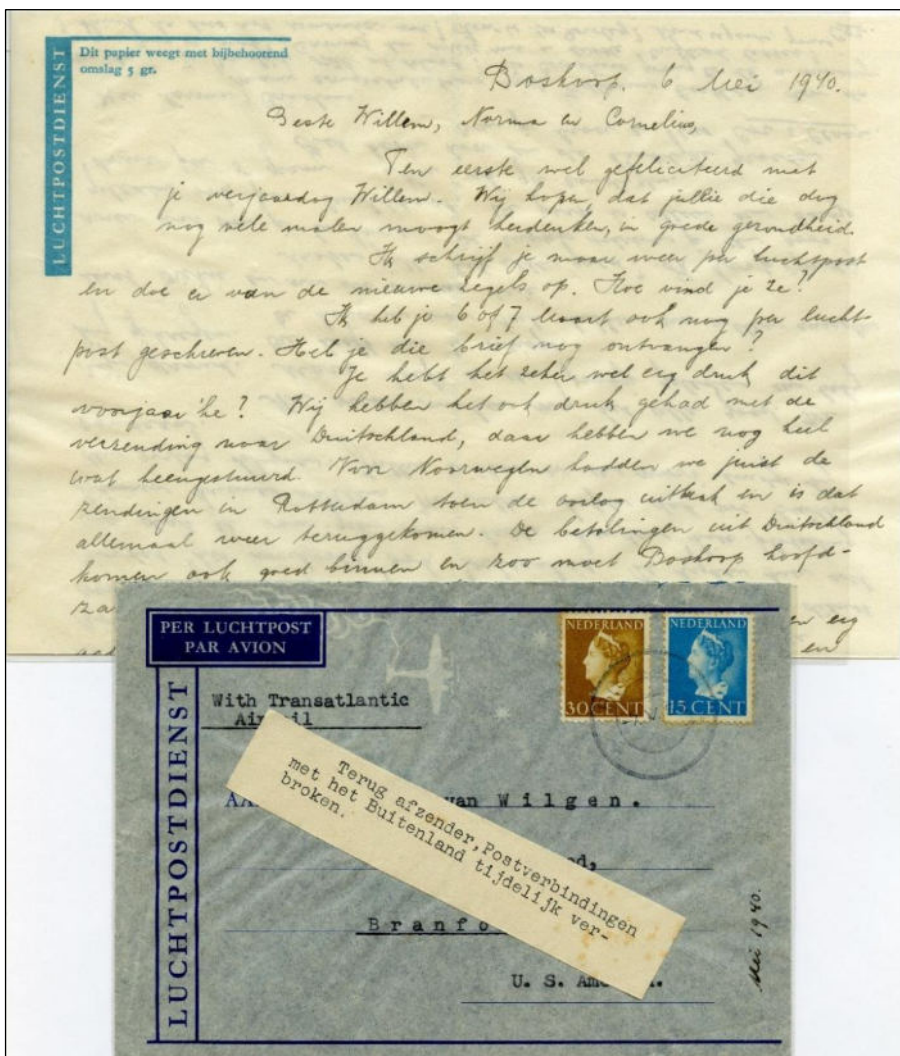 LUCHTPOSTDIENST
Dit papier weegt met bijbehoorend
omslag 5 gr.
Boskoop. 6 Mei 1940.
Beste Willem, Norma en Cornelius,
Ten eerste wel gefeliciteerd met
je verjaardag Willem. Wij hopen, dat jullie die dag
nog vele malen moogt herdenken, in goede gezondheid.
Ik schrijf je maar weer per luchtpost
en doe er van de nieuwe zegels op. Hoe vind je ze?
Ik heb je 6 of 7 Maart ook nog per lucht-
post geschreven. Heb je die brief nog ontvangen?
Je hebt het zeker wel erg druk dit
voorjaar he? Wij hebben het ook druk gehad met de
verzending naar Duitschland, daar hebben we nog heel
wat heengestuurd. Voor Noorwegen hadden we juist de
zendingen in Rotterdam toen de oorlog uitbrak en is dat
allemaal weer teruggekomen. De betalingen uit Duitschland
komen ook goed binnen en zoo moet Boskoop hoofd-
za
en erg
en
PER LUCHTPOST
PAR AVION
NEDERLAND
30 CENT
NEDERLAND
15 CENT
LUCHTPOSTDIENST
With Transatlantic
Terug afzender, Postverbindingen
met het Buitenland tijdelijk ver-
broken.
van Wilgen.
U. S.
Mei 1940.